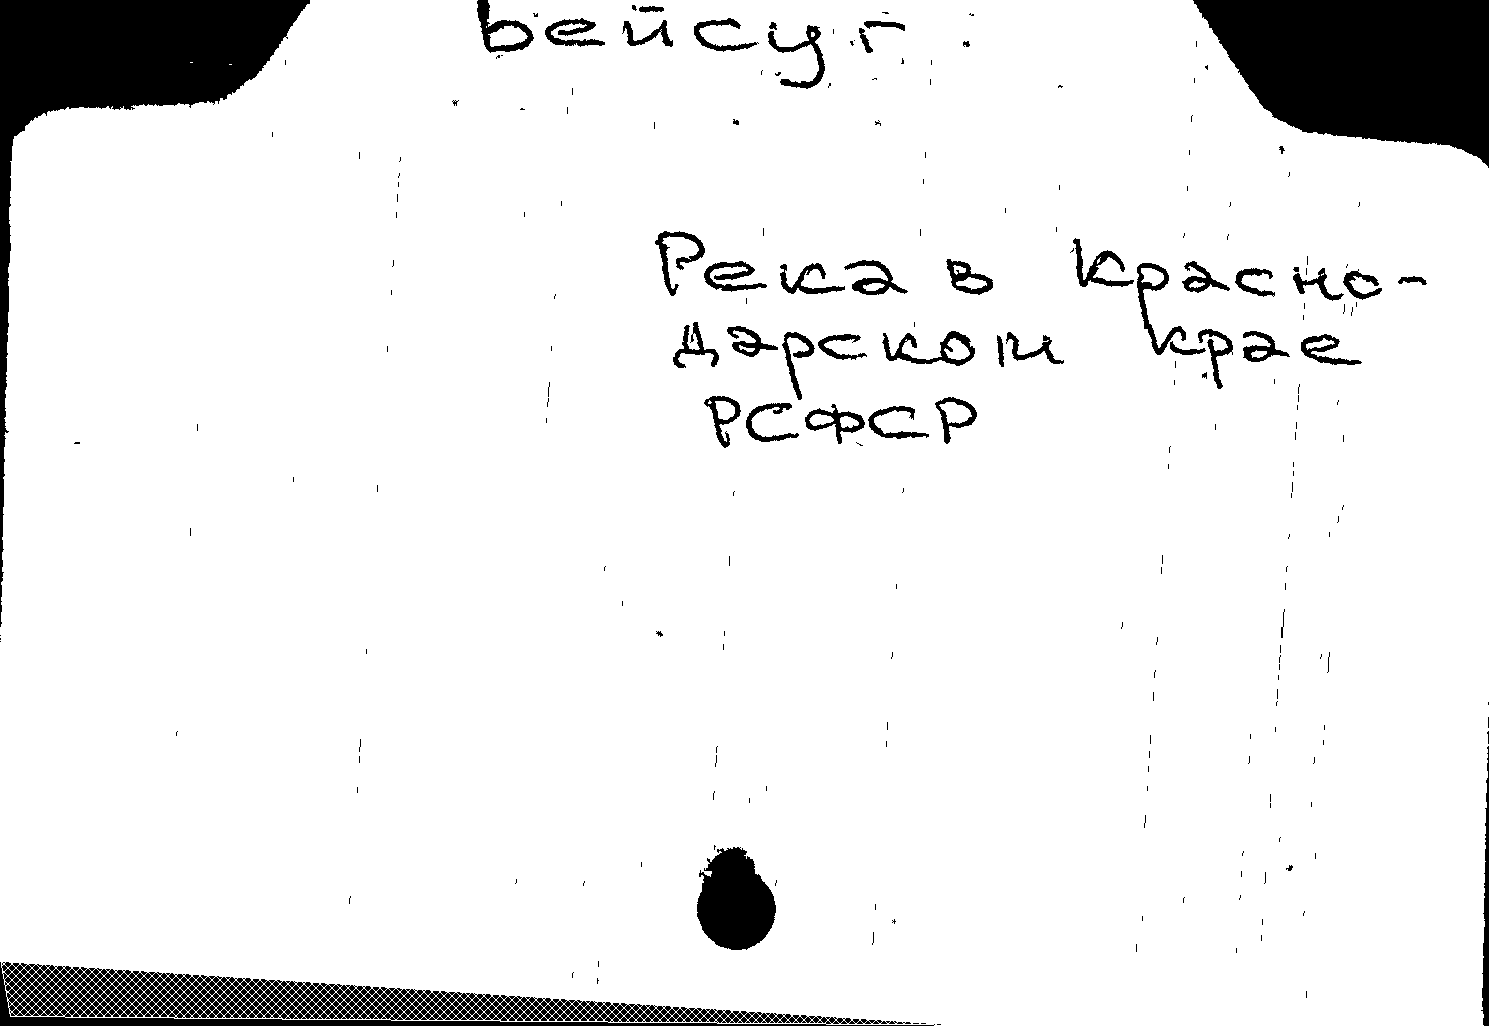 Бейсуг
Река в Красно-
дарском крае
РСФСР